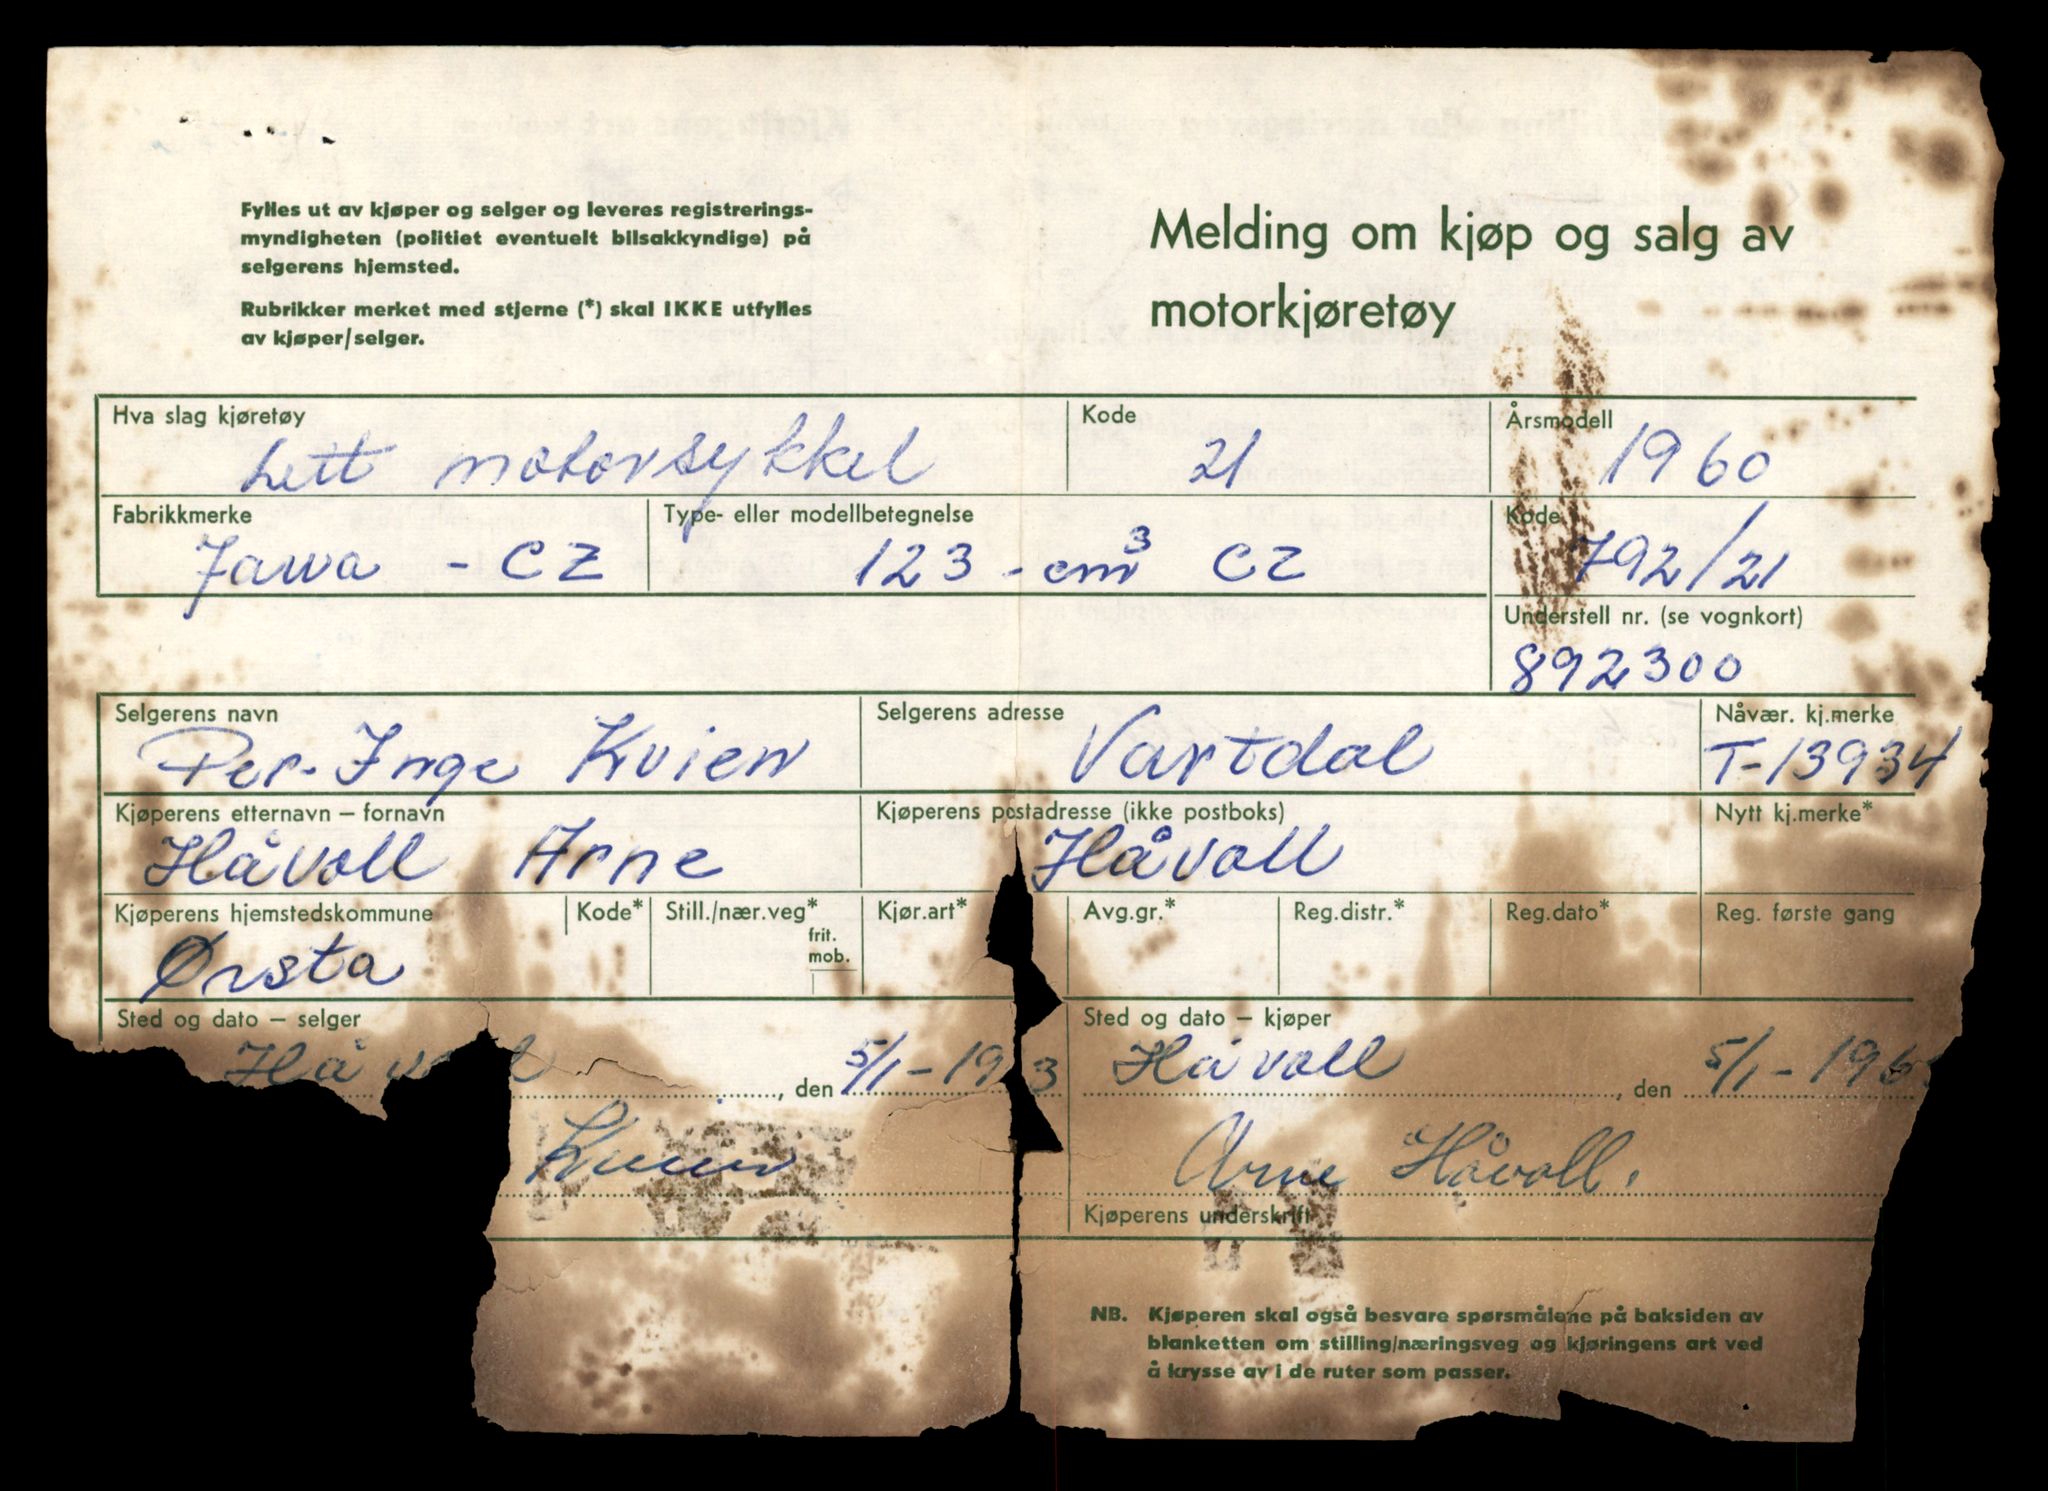 Fylles ut av kjøper og selger og leveres registrerings-
myndigheten (politiet eventuelt bilsakkyndige) på
selgerens hjemsted.
Rubrikker merket med stjerne (*) skal IKKE utfylles
av kjøper/selger.
Melding om kjøp og salg av
motorkjøretøy
Hva slag kjøretøy
Lett motorsykkel
Kode
21
Årsmodell
1960
Fabrikkmerke
Jawa - CZ
Type- eller modellbetegnelse
123 - cm³ CZ
Kode
792/21
Understell nr. (se vognkort)
892300
Selgerens navn
Per-Inge Kvien
Selgerens adresse
Vartdal
Nåvær. kj.merke
T-13934
Kjøperens etternavn – fornavn
Håvoll Arne
Kjøperens postadresse (ikke postboks)
Håvoll
Nytt kj.merke*
Kjøperens hjemstedskommune
Ørsta
Kode*
Still./nær.veg*
frit.
mob.
Kjør.art*
Avg.gr.*
Reg.distr.*
Reg.dato*
Reg. første gang
Sted og dato – selger
, den 5/1-19 3
Sted og dato – kjøper
Håvoll, den 5/1-196
Kvien
Arne Håvoll.
Kjøperens underskrift
NB. Kjøperen skal også besvare spørsmålene på baksiden av
blanketten om stilling/næringsveg og kjøringens art ved
å krysse av i de ruter som passer.